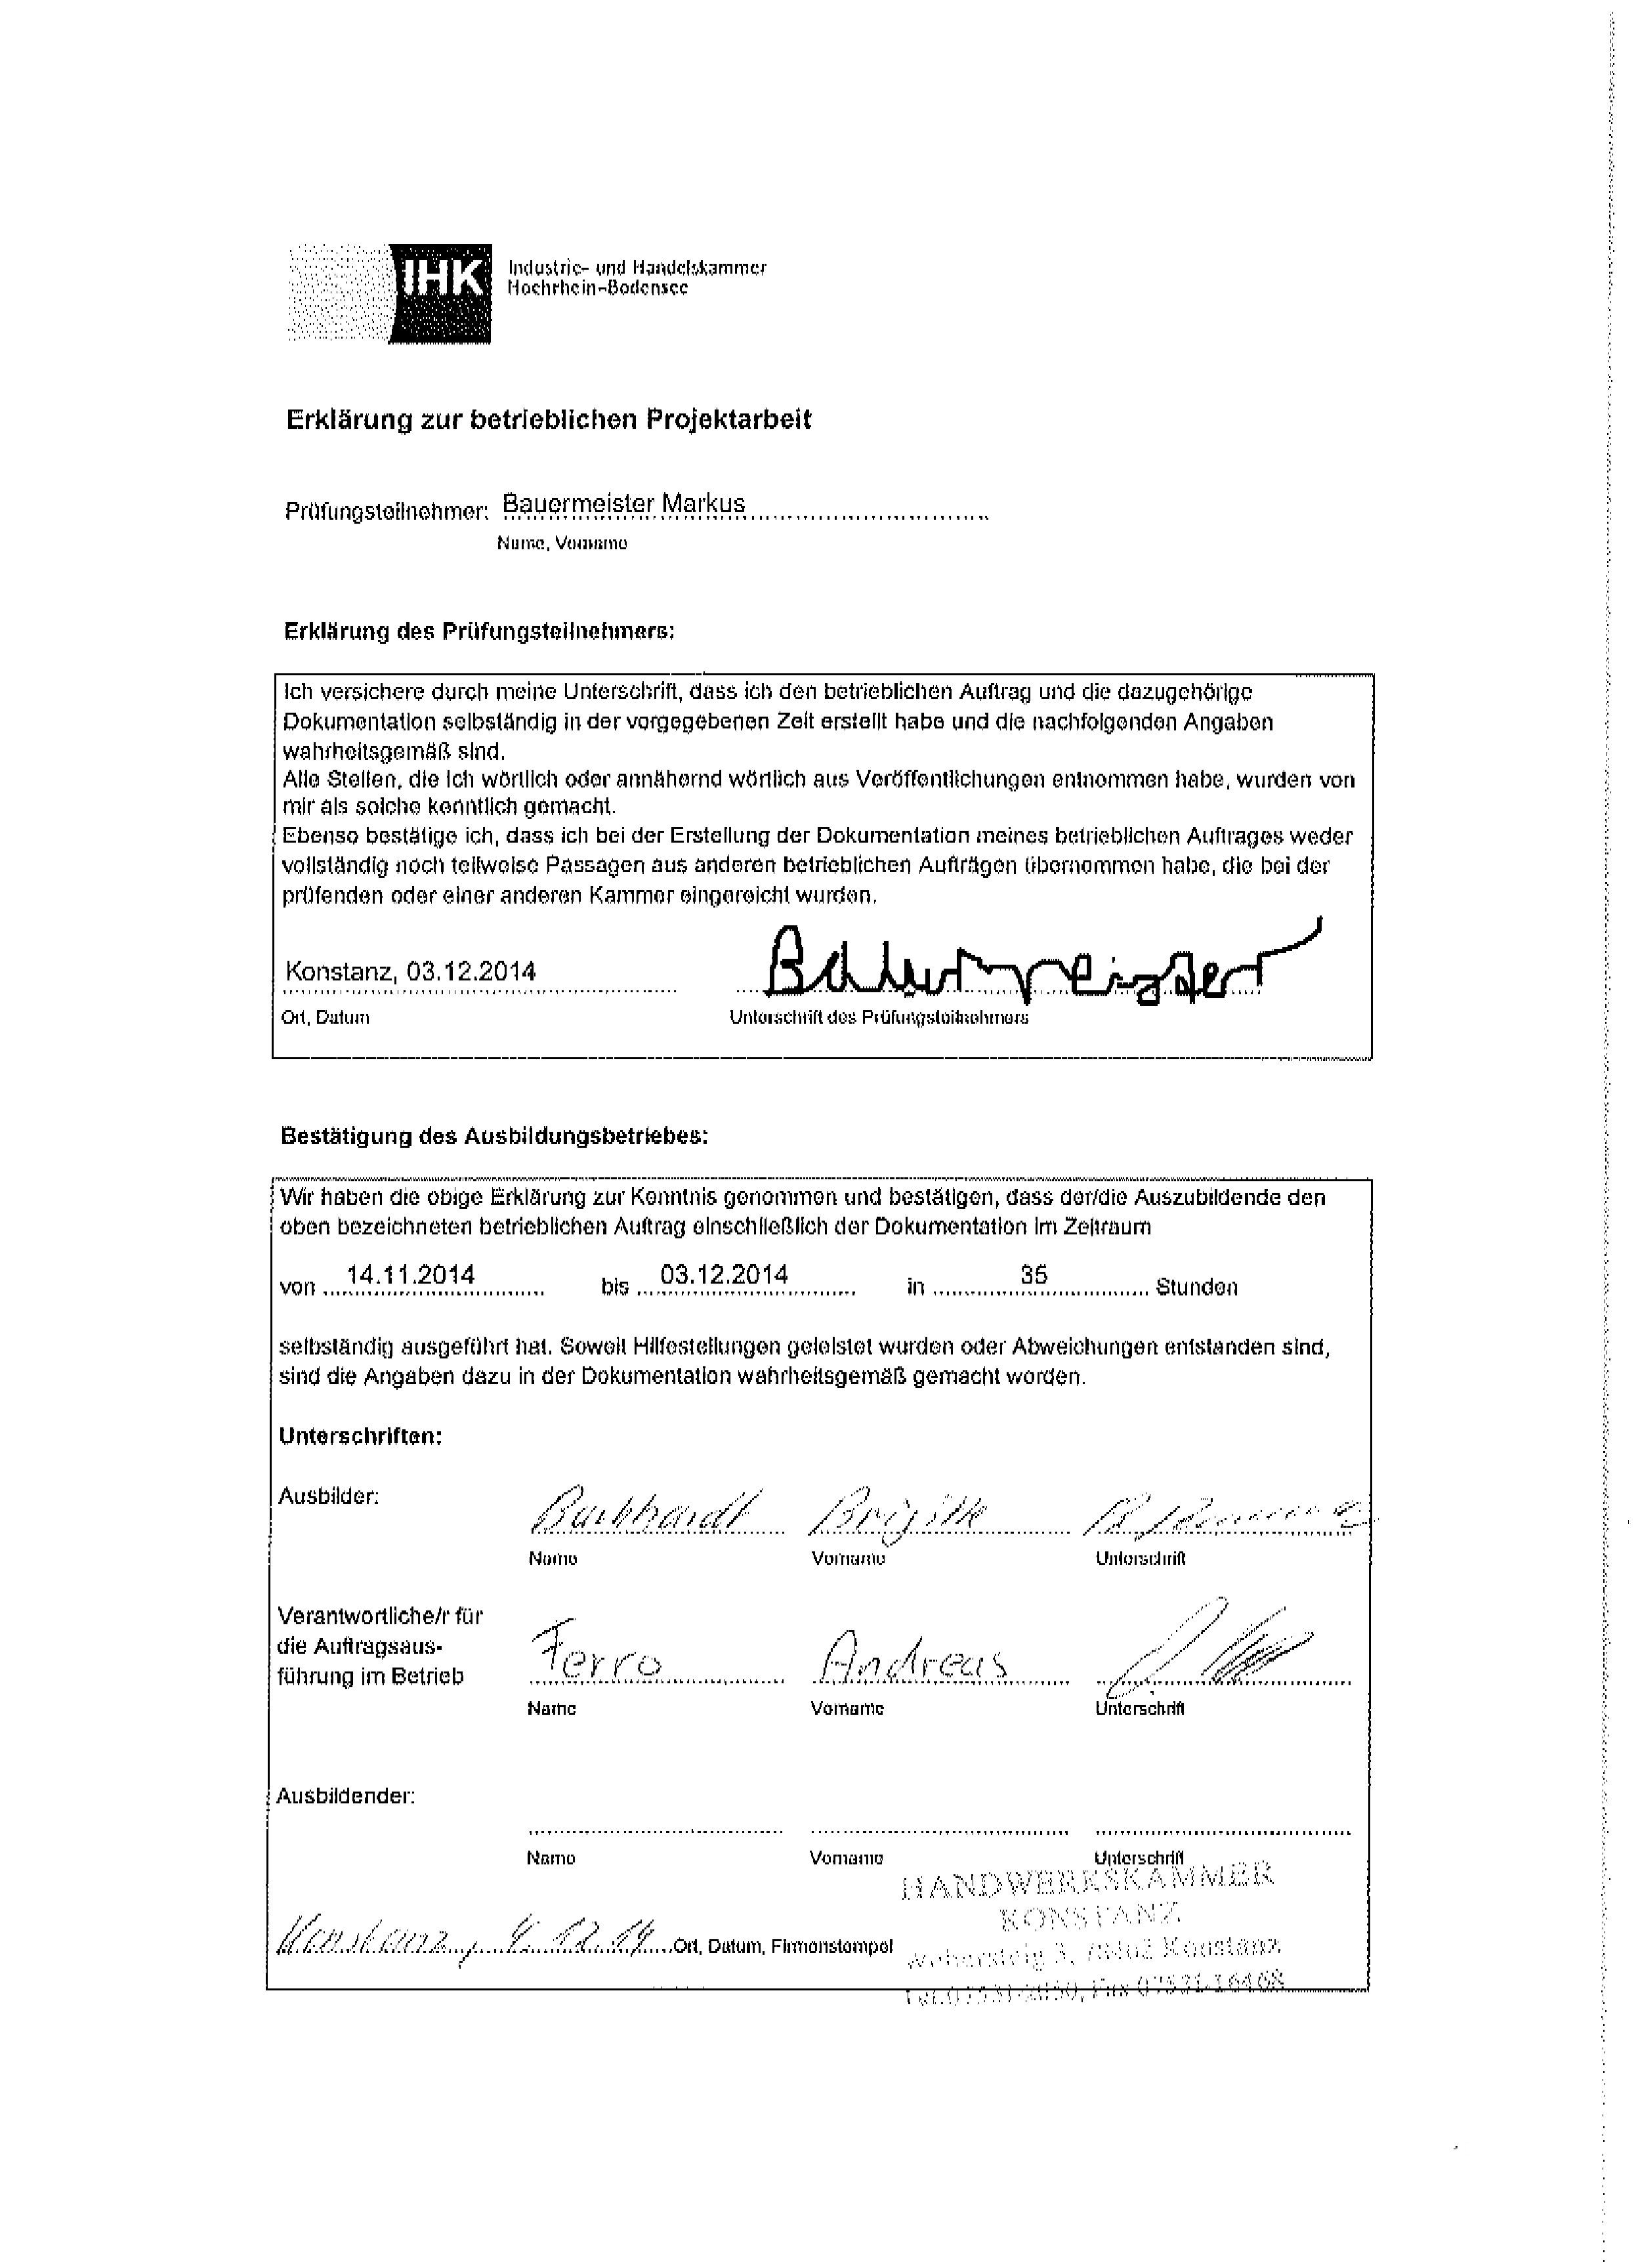 IHK
Industrie- und Handelskammer
Hochrhein-Bodensee
Erklärung zur betrieblichen Projektarbeit
Prüfungsteilnehmer: Bauermeister Markus
Name, Vorname
Erklärung des Prüfungsteilnehmers:
Ich versichere durch meine Unterschrift, dass ich den betrieblichen Auftrag und die dazugehörige
Dokumentation selbständig in der vorgegebenen Zeit erstellt habe und die nachfolgenden Angaben
wahrheitsgemäß sind.
Alle Stellen, die ich wörtlich oder annähernd wörtlich aus Veröffentlichungen entnommen habe, wurden von
mir als solche kenntlich gemacht.
Ebenso bestätige ich, dass ich bei der Erstellung der Dokumentation meines betrieblichen Auftrages weder
vollständig noch teilweise Passagen aus anderen betrieblichen Aufträgen übernommen habe, die bei der
prüfenden oder einer anderen Kammer eingereicht wurden.
Konstanz, 03.12.2014 Bauermeister
Ort, Datum Unterschrift des Prüfungsteilnehmers
Bestätigung des Ausbildungsbetriebes:
Wir haben die obige Erklärung zur Kenntnis genommen und bestätigen, dass der/die Auszubildende den
oben bezeichneten betrieblichen Auftrag einschließlich der Dokumentation im Zeitraum
von 14.11.2014 bis 03.12.2014 in 35 Stunden
selbständig ausgeführt hat. Soweit Hilfestellungen geleistet wurden oder Abweichungen entstanden sind,
sind die Angaben dazu in der Dokumentation wahrheitsgemäß gemacht worden.
Unterschriften:
Ausbilder: Brigitte
Name Vorname Unterschrift
Verantwortliche/r für
die Auftragsaus-
führung im Betrieb Ferro Andreas
Name Vorname Unterschrift
Ausbildender:
Name Vorname Unterschrift
HANDWERKSKAMMER
KONSTANZ
Konstanz, 4.12.14 Ort, Datum, Firmenstempel
Webersteig 3, 78462 Konstanz
Fax 07531-16468